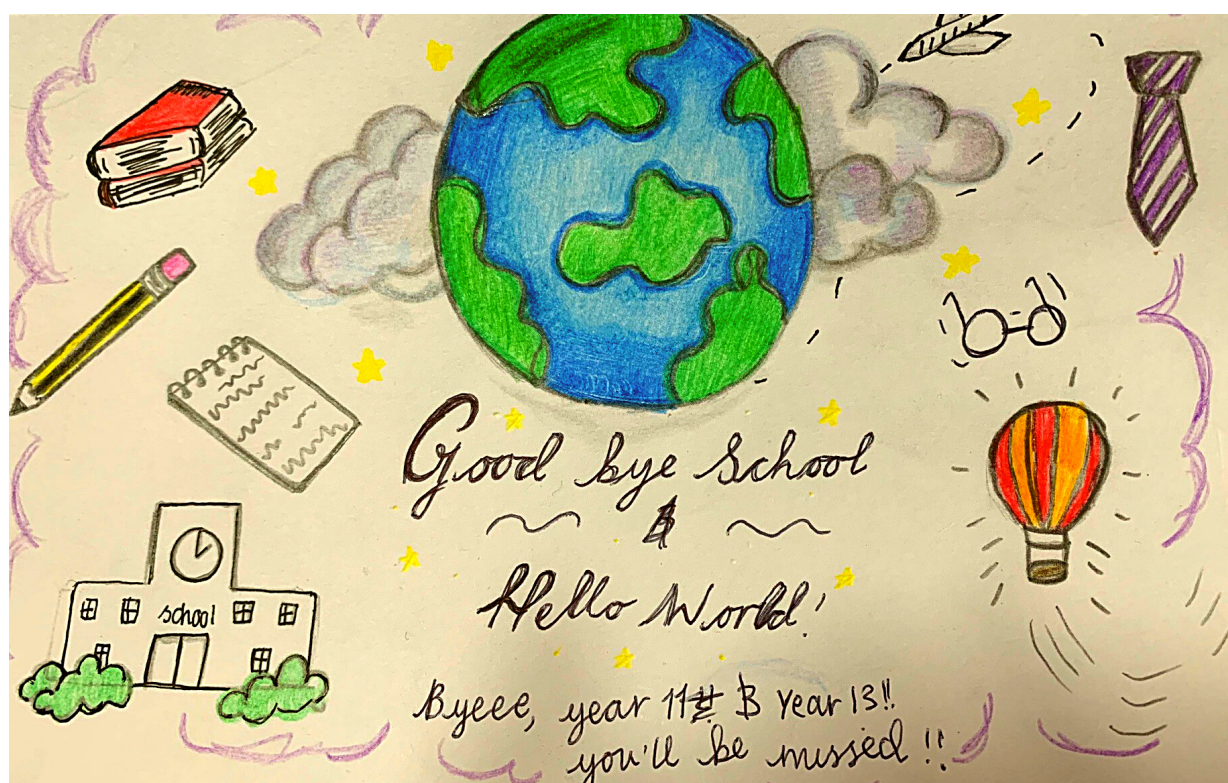 school
Good bye School
&
Hello World!
Byeee, year 11 & Year 13!!
you'll be missed!!